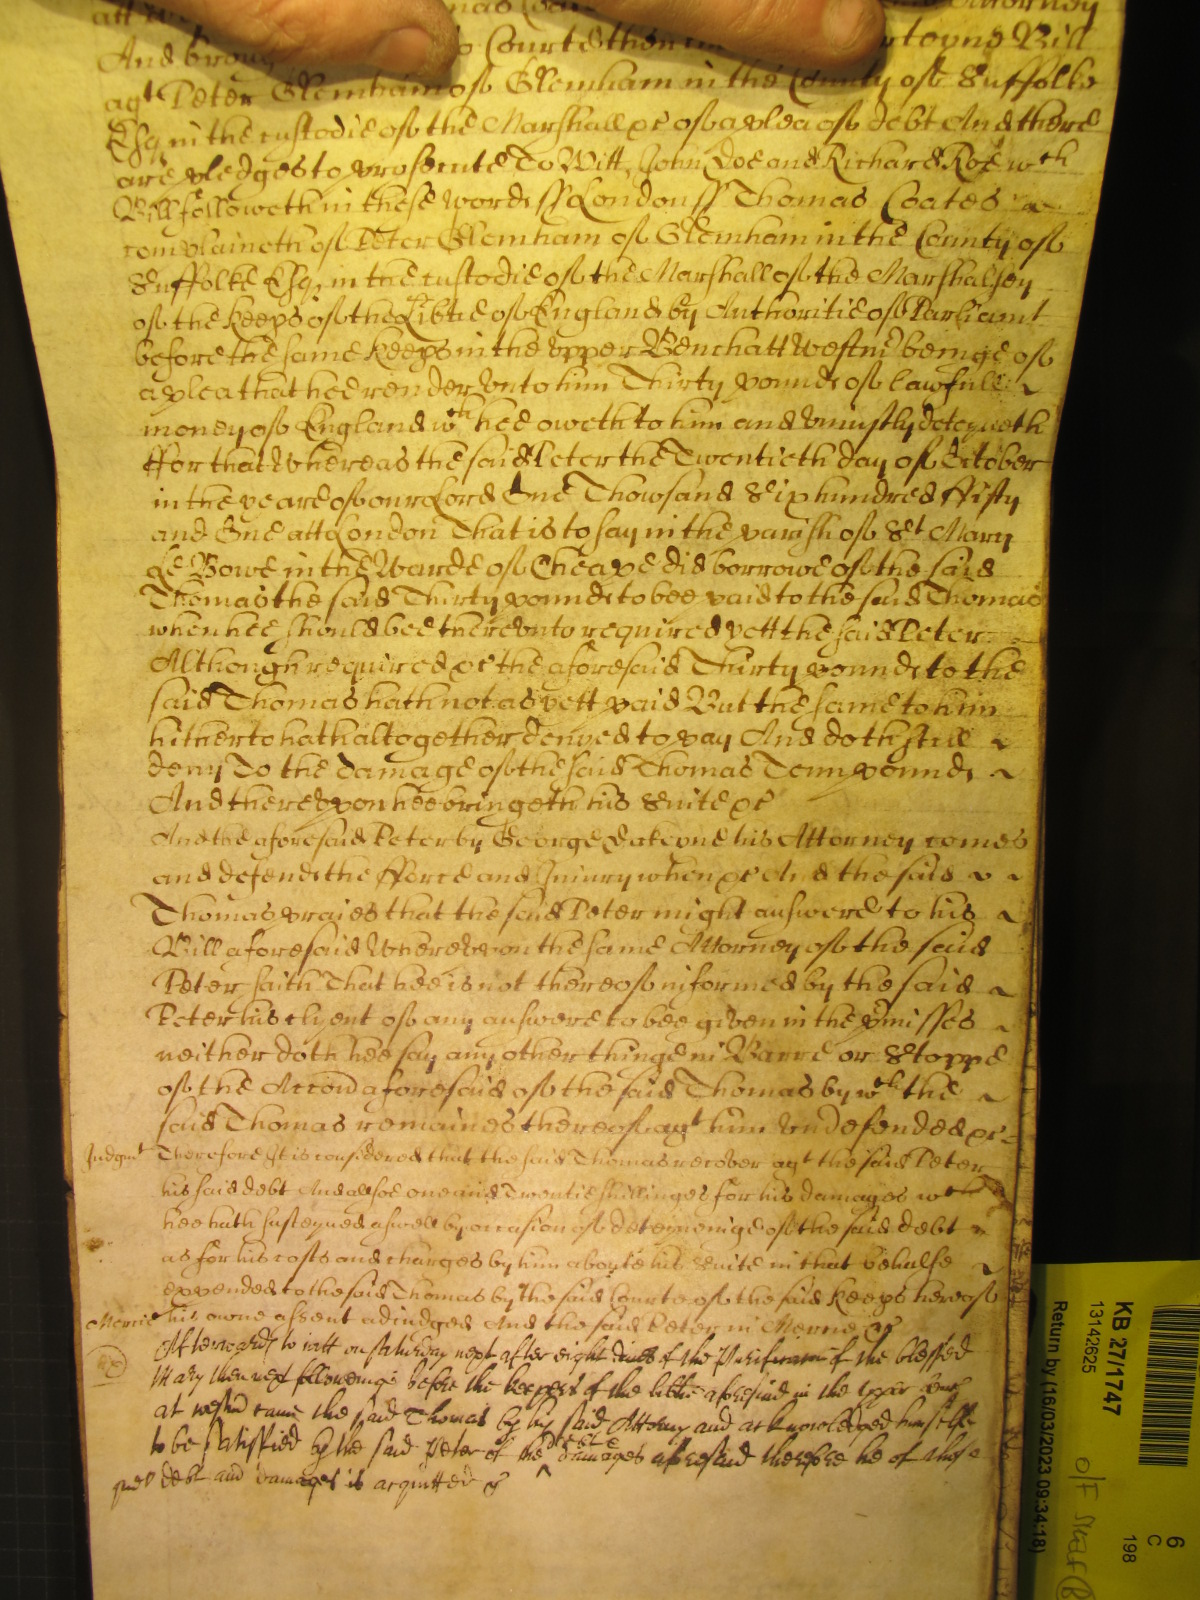 And broug o Courte then rteyne Bill
agt Peter Glemham of Glemham in the County of Suffolke
Esqr in the custodie of the Marshall &c of a plea of debt And there
are pledges to prosecute To Witt, John Doe and Richard Roe wch
Bill followeth in these wordes ss London ss Thomas Coates
complaineth of Peter Glemham of Glemham in the County of
Suffolke Esqr in the custodie of the Marshall of the Marshalsey
of the keeps of the Libtie of England by Authoritie of Parliamt
before the same keeps in the upper Bench att Westmr beinge of
a plea that hee render unto him Thirty pounds of lawfull
money of England wch hee oweth to him and uniustly deteyneth
ffor that Whereas the said Peter the Twentieth day of October
in the yeare of our Lord One Thowsand Six hundred ffifty
and One att London That is to say in the parish of St Mary
Le Bowe in the Warde of Cheape did borrowe of the said
Thomas the said Thirty pounds to bee paid to the said Thomas
when hee should bee thereunto required yett the said Peter
Although required &c the aforesaid Thirty pounds to the
said Thomas hath not as yett paid But the same to him
hitherto hath altogether denyed to pay And doth still
deny To the damage of the said Thomas Tenn pounds
And thereupon hee bringeth his Suite &c
And the aforesaid Peter by George his Attorney comes
and defends the fforce and Iniury when &c And the said
Thomas praies that the said Peter might answere to his
Bill aforesaid Whereupon the same Attorney of the said
Peter saith That hee is not thereof informed by the said
Peter his clyent of any answere to bee given in the pmisses
neither doth hee say any other thinge in Barre or Stoppe
of the Accon aforesaid of the said Thomas by wch the
said Thomas remaines thereof agt him Undefended &c
Judgmt Therefore It is considered that the said Thomas recover agt the said Peter
his said debt And alsoe one and Twentie shillinges for his damages wch
hee hath susteyned aswell by occasion of deteyneinge of the said debt
as for his costs and charges by him aboute his Suite in that behalfe
expended to the said Thomas by the said Courte of the said keeps hereof
Mercie his owne assent adiudged And the said Peter in Mercie &c
Afterwards to witt on saturday next after eight daies of the Purificacon of the blessed
Mary then next followeing before the keepers of the libtie aforesaid in the upper bench
at westmr came the said Thomas by his said Attorny and acknowledged himselfe
to be satisfied by the said Peter of the debt & damages aforesaid therefore he of those
debt and damages is acquitted &c
KB 27/1747
13142625
Return by (16/03/2023 09:34:18)
6
C
198